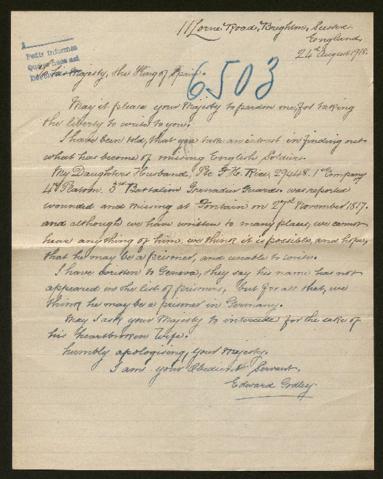 11 Lorne Road, Brighton, Sussex
England
24th August 1918.
Pedir Informes
His Majesty, the King of Spain.
6503
May it please your Majesty to pardon me, for taking
the liberty to write to you.
I have been told, that you take an interest in finding out
what has become of missing English Soldiers.
My Daughters Husband, Pte G. H. Rice, 29448. 1st Company
4th Platoon. 3rd Battalion Grenadier Guards was reported
wounded and missing at Fontain on 27th November 1917.
and although we have written to many places, we cannot
hear anything of him, we think it is possible, and hope,
that he may be a prisoner, and unable to write.
I have written to Geneva, they say his name has not
appeared in the list of prisoners, But for all that, we
think he may be a prisoner in Germany.
May I ask your Majesty to intercede for the sake of
his Heartbroken Wife.
humbly apologising, your Majesty.
I am your Obedient Servant.
Edward